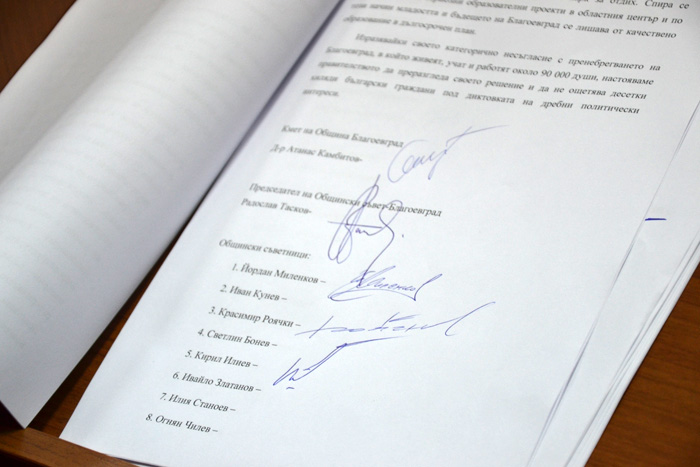 за отдих. Спира се
образователни проекти в областния център и по
този начин младостта и бъдещето на Благоевград се лишава от качествено
образование в дългосрочен план.
Изразявайки своето категорично несъгласие с пренебрегването на
Благоевград, в който живеят, учат и работят около 90 000 души, настояваме
правителството да преразгледа своето решение и да не ощетява десетки
хиляди български граждани под диктовката на дребни политически
интереси.
Кмет на Община Благоевград
Д-р Атанас Камбитов-
Председател на Общински съвет-Благоевград
Радослав Тасков-
Общински съветници:
1. Йордан Миленков –
2. Иван Кунев –
3. Красимир Роячки –
4. Светлин Бонев –
5. Кирил Илиев –
6. Ивайло Златанов –
7. Илия Станоев –
8. Огнян Чилев –